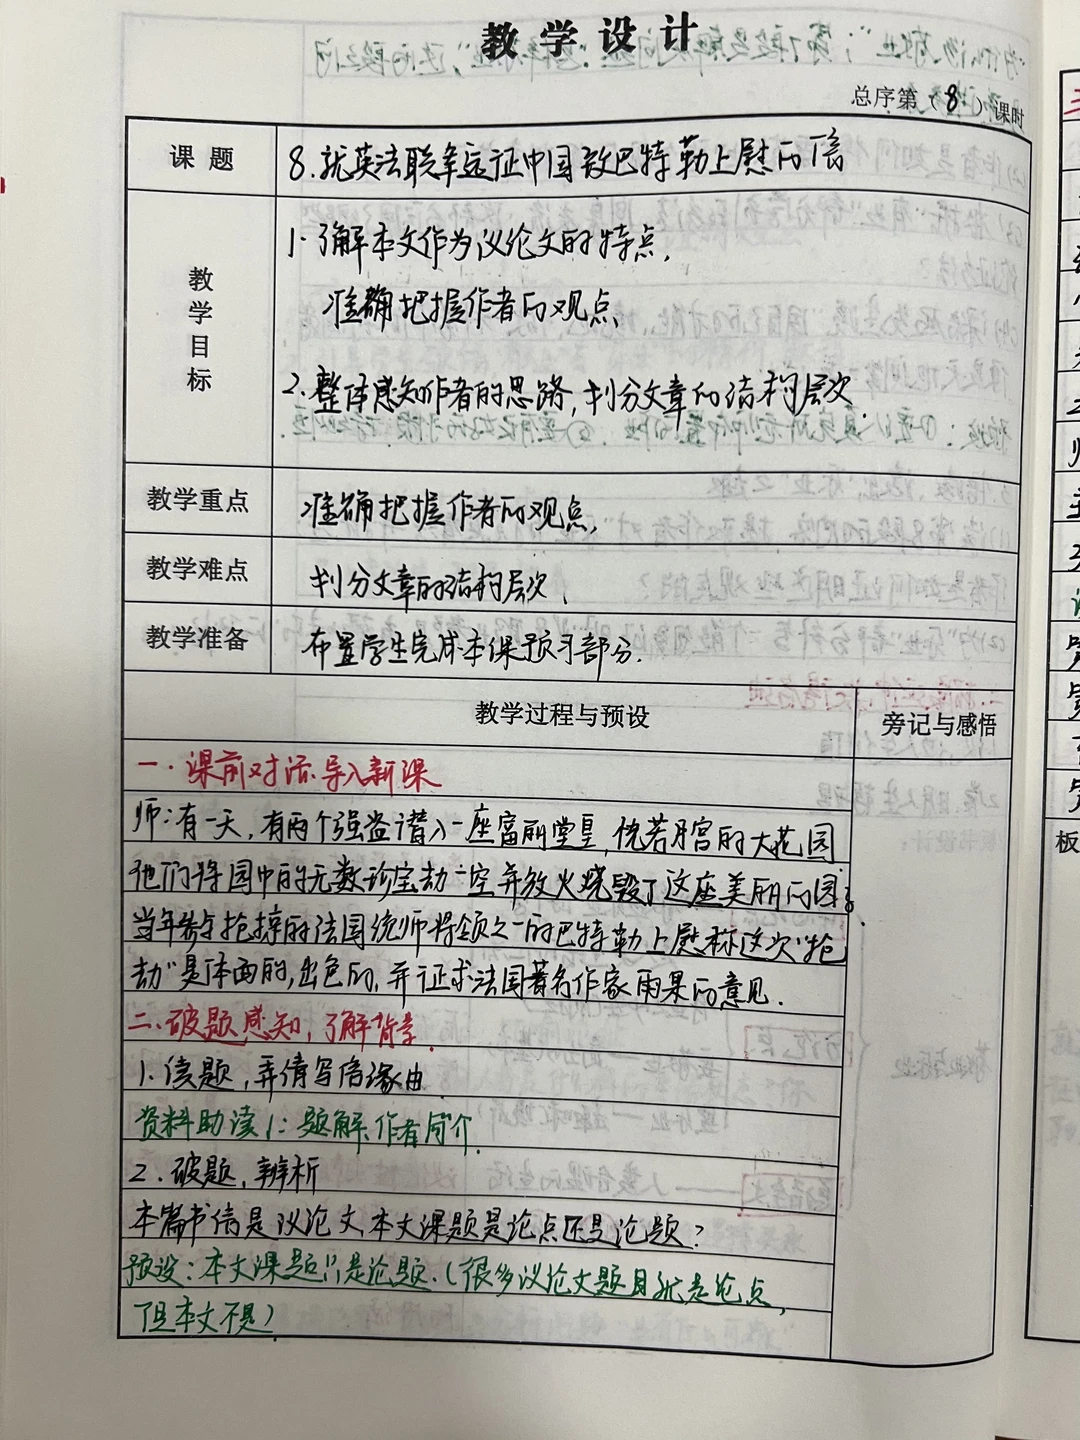 教学设计
总序第（8）课时
课题
8.就英法联军远征中国致巴特勒上尉的信
教学目标
1.了解本文作为议论文的特点,
准确把握作者的观点
2.整体感知作者的思路,划分文章的结构层次.
教学重点
准确把握作者的观点,
教学难点
划分文章的结构层次、
教学准备
布置学生完成本课预习部分.
教学过程与预设
旁记与感悟
一.课前对话.导入新课
师:有一天,有两个强盗潜入一座富丽堂皇,恍若月宫的大花园
他们将园中的无数珍宝劫一空并放火烧毁了这座美丽的园子
当年参与抢掠的法国统帅将领之一的巴特勒上尉称这次"抢
劫"是体面的,出色的,并征求法国著名作家雨果的意见.
二.破题感知,了解背景
1.读题,弄清写信缘由
资料助读1:题解、作者简介
2.破题,辨析
本篇书信是议论文,本文课题是论点还是论题?
预设:本文课题只是论题.(很多议论文题目就是论点,
但本文不是)
板